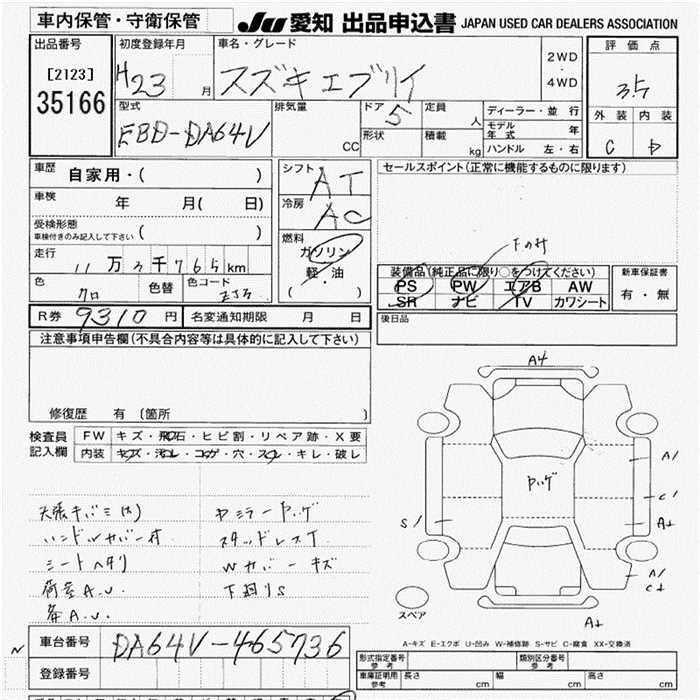 車内保管・守衛保管
JU 愛知 出品申込書 JAPAN USED CAR DEALERS ASSOCIATION
出品番号
[2123]
35166
初度登録年月
H23 月
車名・グレード
スズキ エブリイ
2WD
・
4WD
評価点
3.5
外装 内装
C D
型式
EBD-DA64V
排気量
CC
ドア 5
形状
定員 人
積載 kg
ディーラー・並行
モデル年式 年
ハンドル 左・右
車歴 自家用・( )
車検 年 月( 日)
受検形態
車検付きのみ記入して下さい ( )
走行 11万3千765km
色 クロ 色替 色コード ZJ3
シフト AT
冷房 AC
燃料
ガソリン
軽・油
( )
セールスポイント(正常に機能するものに限ります)
装備品(純正品に限り○をつけてください)
PS PW エアB AW
SR ナビ TV カワシート
新車保証書
有・無
R券 9310円 名変通知期限 月 日
後日品
注意事項申告欄(不具合内容等は具体的に記入して下さい)
修復歴 有 (箇所 )
検査員記入欄
FW キズ・飛石・ヒビ割・リペア跡・X要
内装 キズ・汚レ・コゲ・穴・スレ・キレ・破レ
ハンドルカバー付
シートヘタリ
荷室A.U.
スタッドレスT
Wカバーキズ
下廻りS
A4
ヤハゲ
A1
C1
S1
A1
スペア
A-キズ E-エクボ U-凹み W-補修跡 S-サビ C-腐食 XX-交換済
N
車台番号 DA64V-465736
登録番号
形式指定番号 参考 類別区分番号 参考
車庫証明用 参考 長さ cm 幅 cm 高さ cm